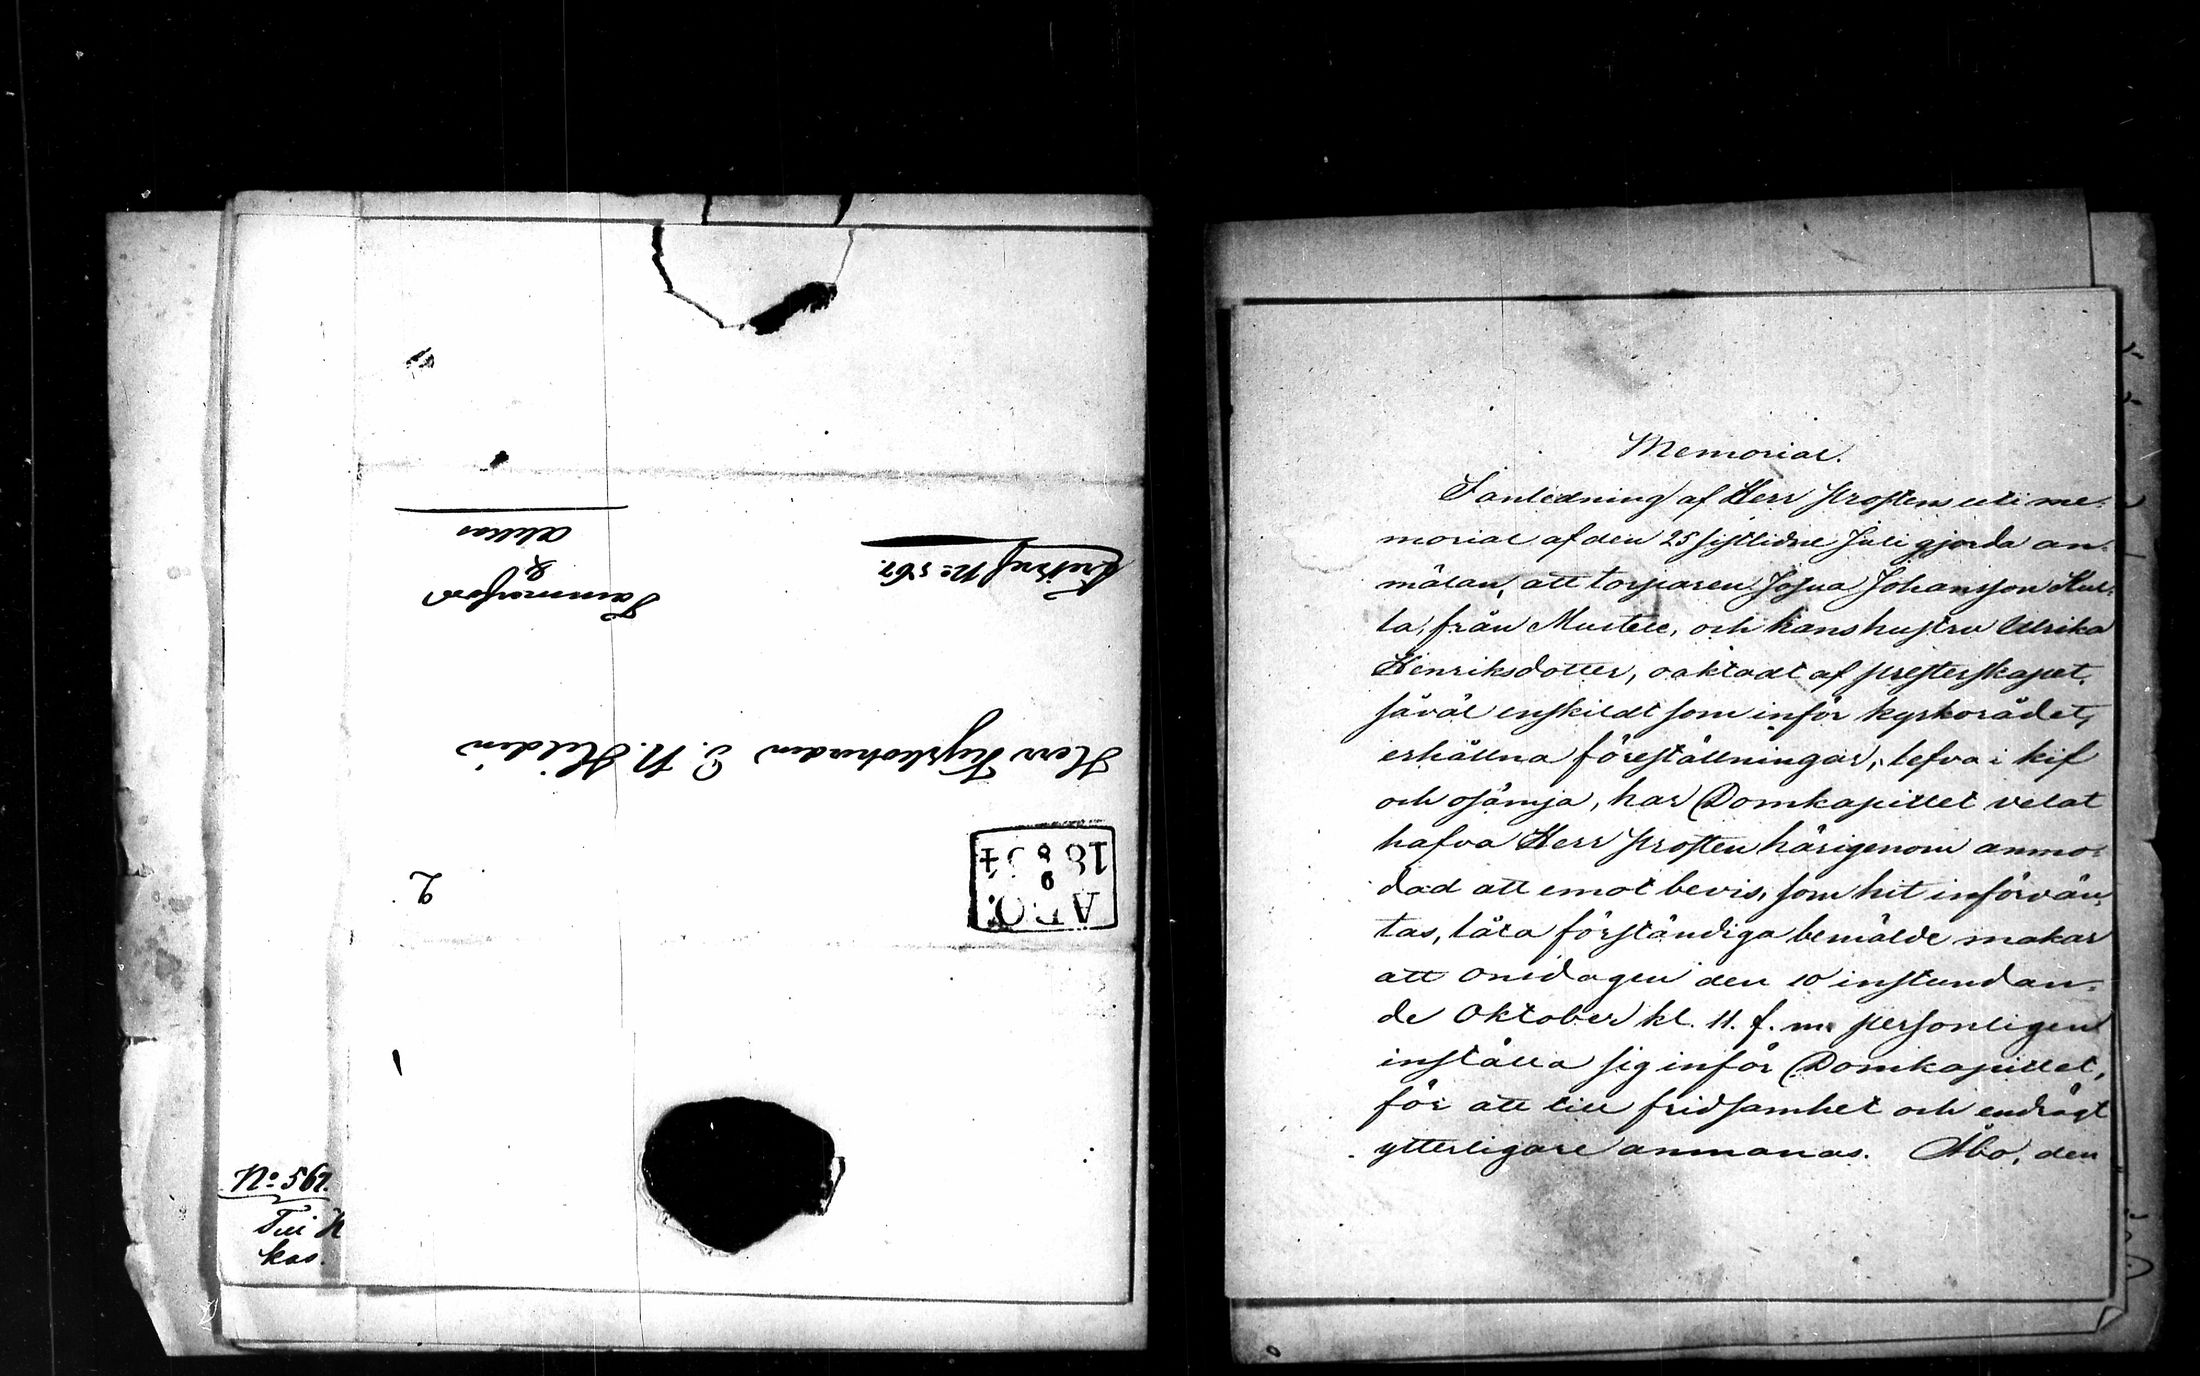 Herr Kyrkoherden J. N. Helin
Tammerfors
&
Akkas
Krutbref No 567.
ABO.
18 6/8 54
2
No 567.
Till K
kas.
Memorial.
I anledning af Herr Prostens uti me-
morial af den 25 sistlidne Juli gjorda an-
mälan, att torparen Josua Johansson Hut-
ta, från Mustell, och hans hustru Ulrika
Henriksdotter, oaktadt af presterskapet,
såväl enskildt som inför kyrkorådet,
erhållna föreställningar, lefva i kif
och osämja, har Domkapitlet velat
hafva Herr Prosten härigenom anmo-
dad att emot bevis, som hit införvän-
tas, låta förständiga bemälde makar
att Onsdagen den 10 instundan-
de Oktober kl. 11. f. m. personligen
inställa sig inför Domkapitlet,
för att till fridsamhet och endrägt
ytterligare anmanas. Åbo, den